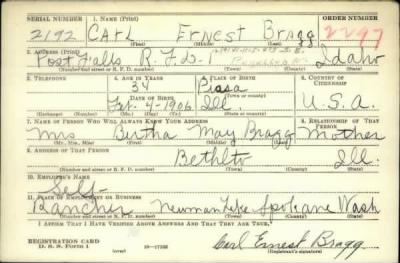 SERIAL NUMBER 1. NAME (Print) ORDER NUMBER
2192 CARL Ernest Bragg 2297
(First) (Middle) (Last)
2. ADDRESS (Print)
Post Falls R.F.D. 1 Idaho
(Number and street or R. F. D. number) (Town) (County) (State)
3. TELEPHONE 4. AGE IN YEARS 5. PLACE OF BIRTH 6. COUNTRY OF CITIZENSHIP
34 Pissa
(Town or county)
DATE OF BIRTH
Feb. 4-1906 Ill. U.S.A.
(Exchange) (Number) (Mo.) (Day) (Yr.) (State or country)
7. NAME OF PERSON WHO WILL ALWAYS KNOW YOUR ADDRESS 8. RELATIONSHIP OF THAT PERSON
Mrs Bertha May Bragg Mother
(Mr., Mrs., Miss) (First) (Middle) (Last)
9. ADDRESS OF THAT PERSON
Ill.
(Number and street or R. F. D. number) (Town) (County) (State)
10. EMPLOYER'S NAME
Self-
11. PLACE OF EMPLOYMENT OR BUSINESS
Rancher Newman Lake Spokane Wash
(Number and street or R. F. D. number) (Town) (County) (State)
I AFFIRM THAT I HAVE VERIFIED ABOVE ANSWERS AND THAT THEY ARE TRUE.
REGISTRATION CARD
D. S. S. Form 1 (over) 16-17105 Carl Ernest Bragg
(Registrant's signature)